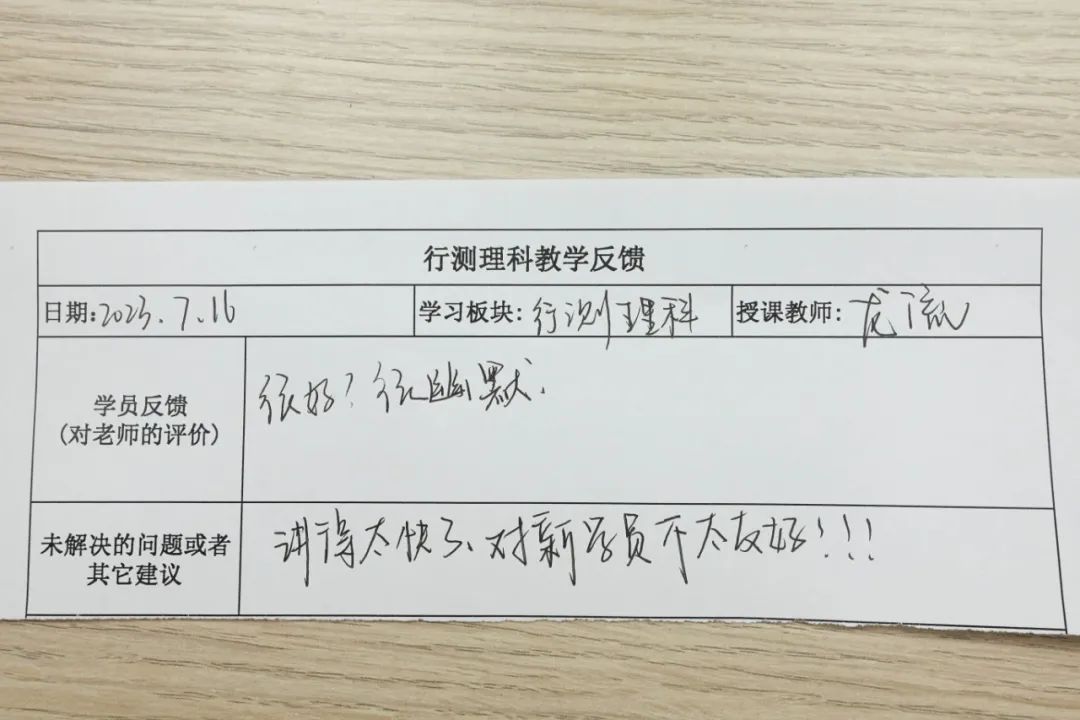 行测理科教学反馈
日期:2023.7.16 学习板块:行测理科 授课教师:龙流
学员反馈
(对老师的评价)
很好!很幽默.
未解决的问题或者
其它建议
讲得太快了、对新学员不太友好!!!